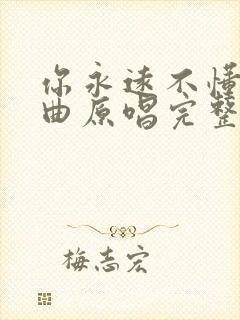 你永远不懂
曲原唱完整
梅志宏